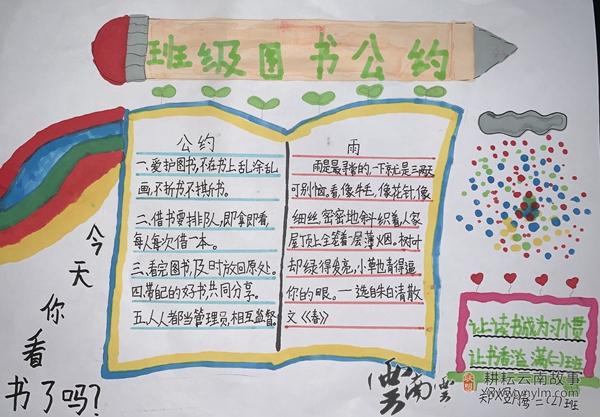 班级图书公约
公约
一、爱护图书,不在书上乱涂乱
画,不折书不撕书。
二、借书要排队,即拿即看,
每人每次借一本。
三、看完图书,及时放回原处。
四、带配的好书,共同分享。
五、人人都当管理员,相互监督。
雨
雨是最寻常的,一下就是三两天
可别恼。看,像牛毛,像花针,像
细丝,密密地斜织着,人家
屋顶上全笼着一层薄烟。树叶
却绿得发亮,小草也青得逼
你的眼。——选自朱自清散
文《春》
今天你看
书了吗?
让读书成为习惯
让书香溢满(二)班
二(2)班
雲南
耕耘云南故事